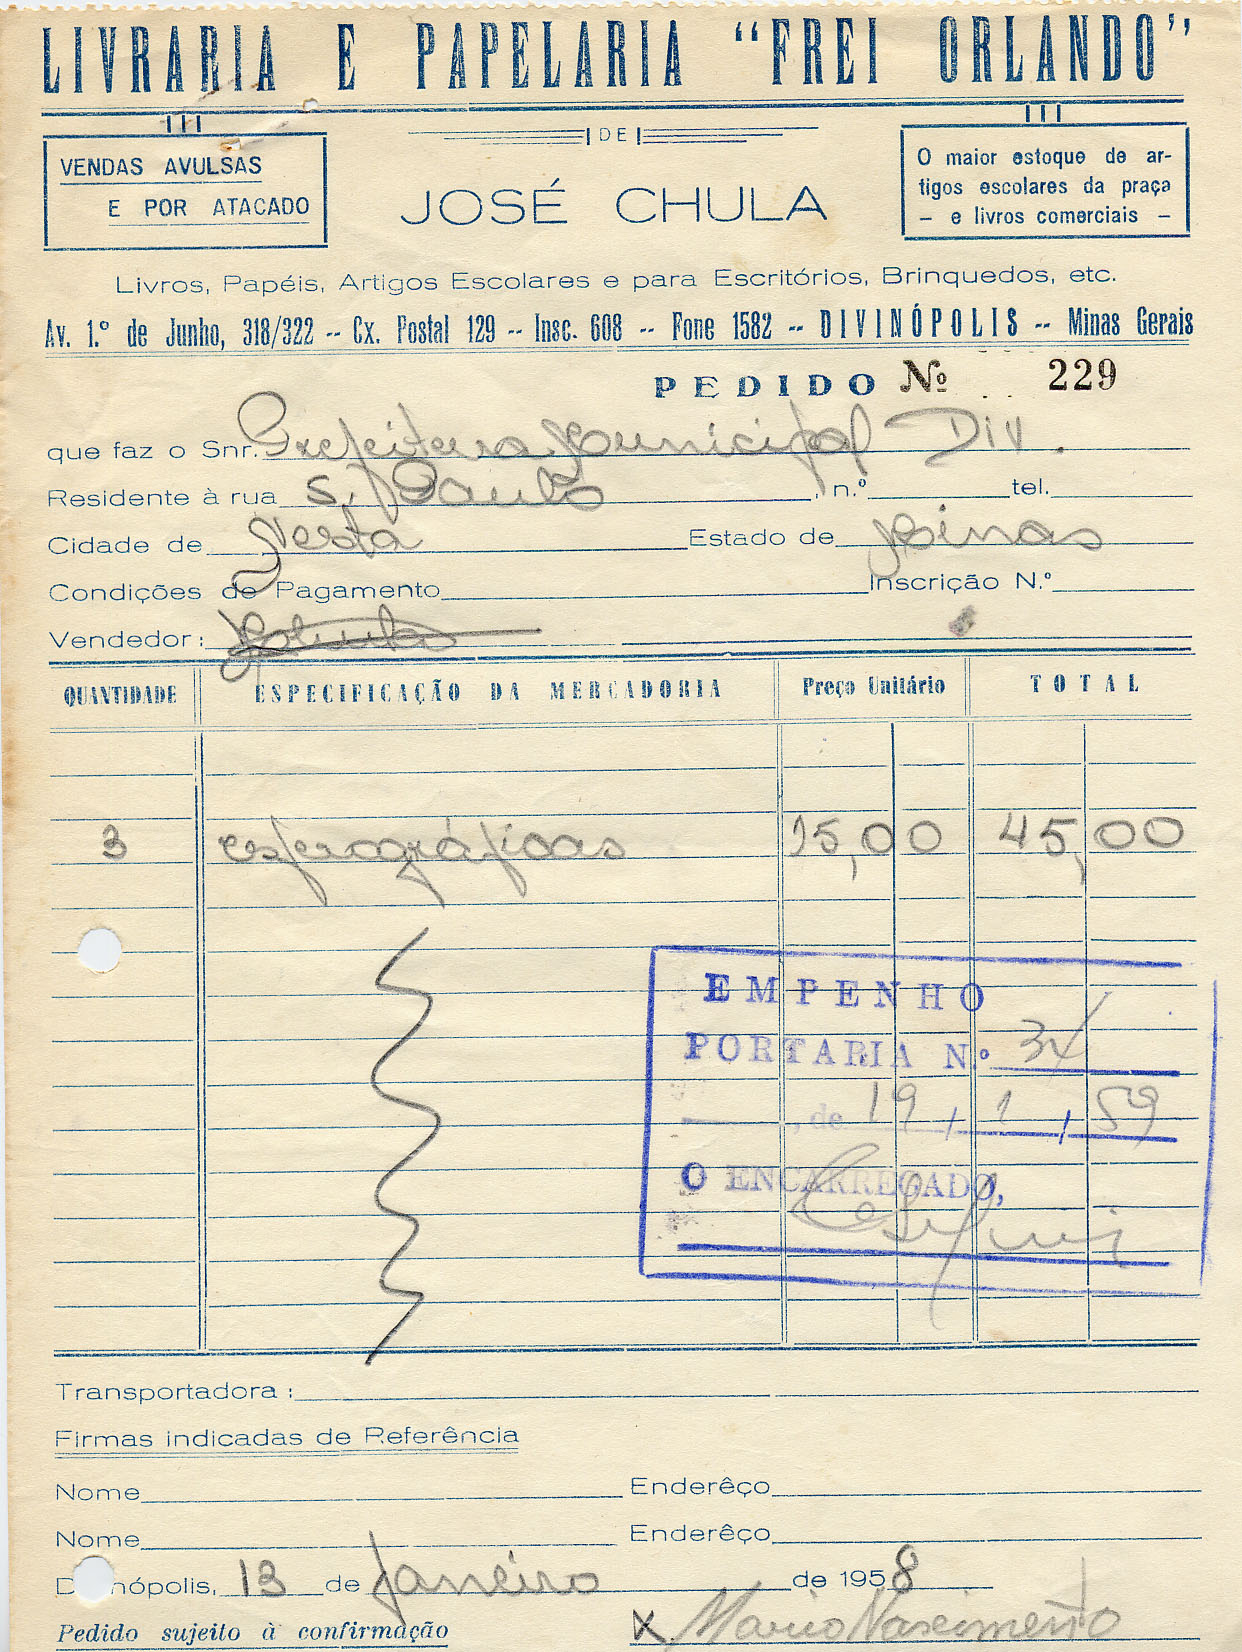 LIVRARIA E PAPELARIA “FREI ORLANDO”
DE
VENDAS AVULSAS
E POR ATACADO
JOSÉ CHULA
O maior estoque de ar-
tigos escolares da praça
- e livros comerciais -
Livros, Papéis, Artigos Escolares e para Escritórios, Brinquedos, etc.
Av. 1.º de Junho, 318/322 -- Cx. Postal 129 -- Insc. 608 -- Fone 1582 -- DIVINÓPOLIS -- Minas Gerais
PEDIDO Nº 229
que faz o Snr. Prefeitura Municipal Div.
Residente à rua S. Paulo, n.º tel.
Cidade de Nesta Estado de Minas
Condições de Pagamento Inscrição N.º
Vendedor:
QUANTIDADE ESPECIFICAÇÃO DA MERCADORIA Preço Unitário TOTAL
3 esferográficas 15,00 45,00
EMPENHO
PORTARIA N.º 34
, de 19 / 1 / 59
O ENCARREGADO,
Transportadora:
Firmas indicadas de Referência
Nome Enderêço
Nome Enderêço
D nópolis, 13 de janeiro de 1958
Pedido sujeito à confirmação X Mario Nascimento